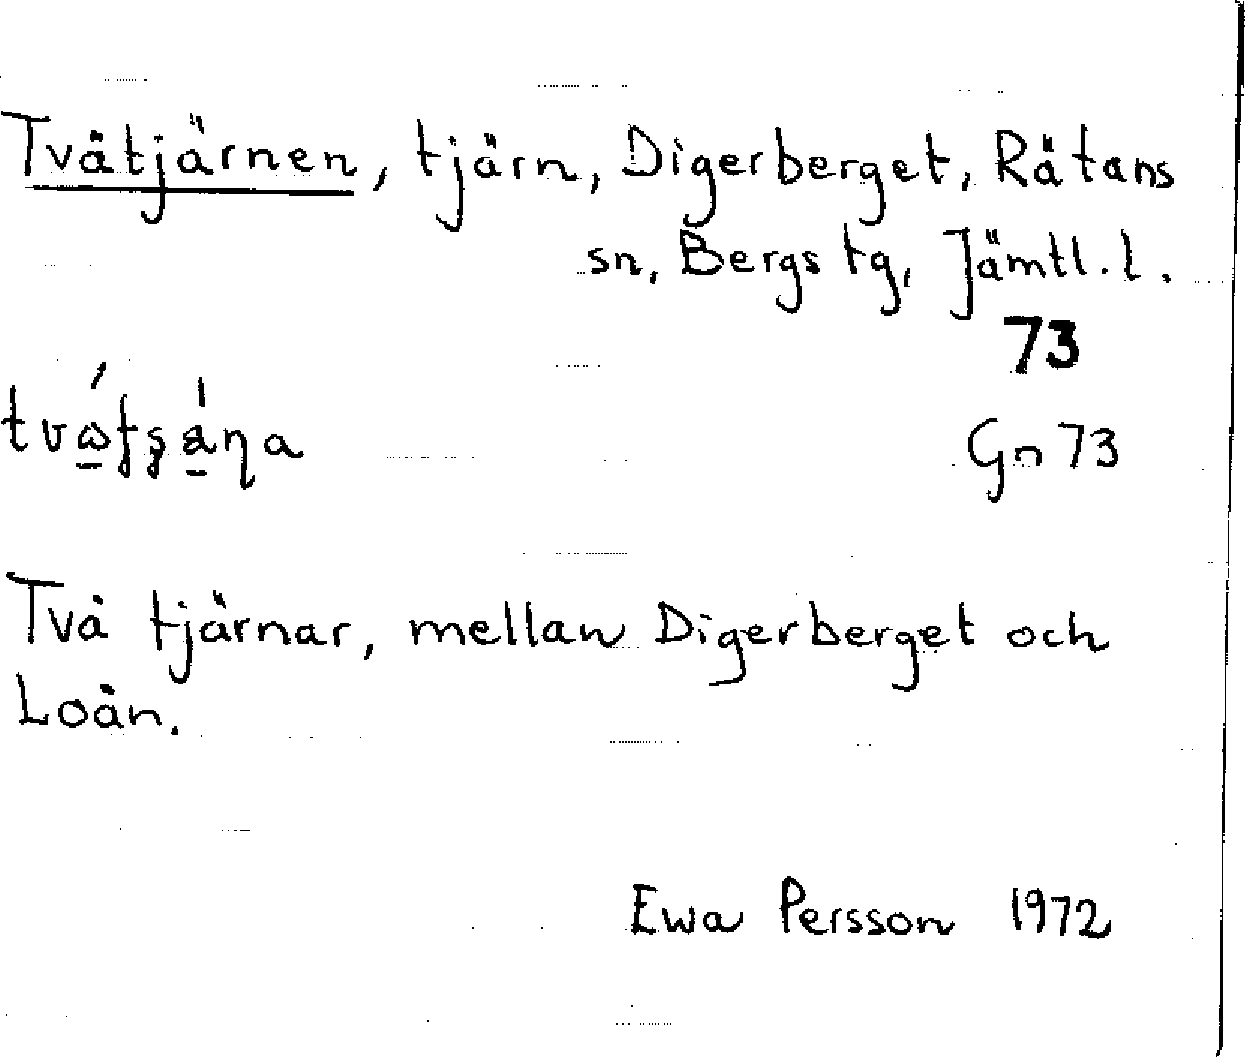 Tvåtjärnen, tjärn, Digerberget, Rätans
sn, Bergs tg, Jämtl. l.
73
Gn 73
Två tjärnar, mellan Digerberget och
Loån.
Ewa Persson 1972